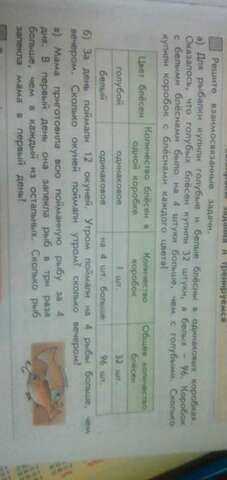 и тренируемся
Решите взаимосвязанные задачи.
а) Для рыбалки купили голубые и белые блёсны в одинаковых коробках.
Оказалось, что голубых блёсен купили 32 штуки, а белых – 96. Коробок
с белыми блёснами было на 4 штуки больше, чем с голубыми. Сколько
купили коробок с блёснами каждого цвета?
Цвет блёсен Количество блёсен в одной коробке Количество коробок Общее количество блёсен
голубой одинаковое ? шт. 32 шт.
белый одинаковое на 4 шт. больше 96 шт.
б) За день поймали 12 окуней. Утром поймали на 4 рыбы больше, чем
вечером. Сколько окуней поймали утром? сколько вечером?
в) Мама приготовила всю пойманную рыбу за 4
дня. В первый день она запекла рыб в три раза
больше, чем в каждый из остальных. Сколько рыб
запекла мама в первый день?